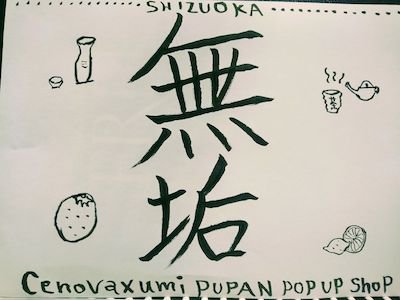 SHIZUOKA
無垢
Cenovaxumi PUPAN POP UP SHOP